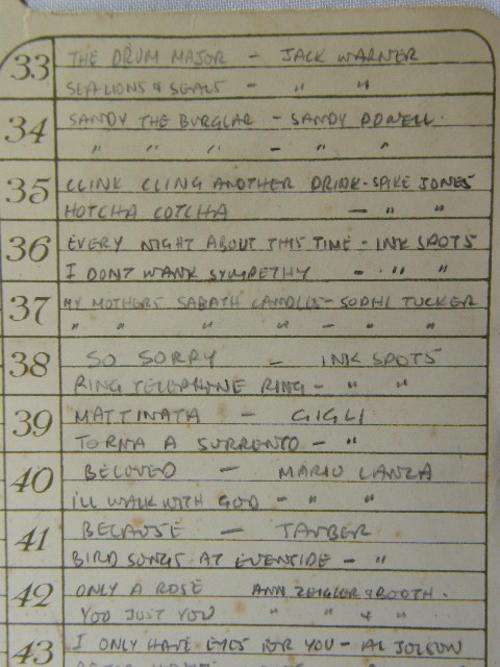 33 THE DRUM MAJOR - JACK WARNER
SEALIONS & SEALS - " "
34 SANDY THE BURGLAR - SANDY POWELL.
" " " - " "
35 CLINK CLING ANOTHER DRINK - SPIKE JONES
HOTCHA COTCHA - " "
36 EVERY NIGHT ABOUT THIS TIME - INK SPOTS
I DONT WANK SYMPETHY - " "
37 MY MOTHERS SABATH CANDLES - SOPHI TUCKER
" " " " - " "
38 SO SORRY - INK SPOTS
RING TELEPHONE RING - " "
39 MATTINATA - GIGLI
TORNA A SURRENTO - "
40 BELOVED - MARIO LANZA
I'LL WALK WITH GOD - " "
41 BECAUSE - TAUBER
BIRD SONGS AT EVENTIDE - "
42 ONLY A ROSE ANN ZEIGLER & BOOTH.
YOU JUST YOU " " & "
43 I ONLY HAVE EYES FOR YOU - AL JOLSON